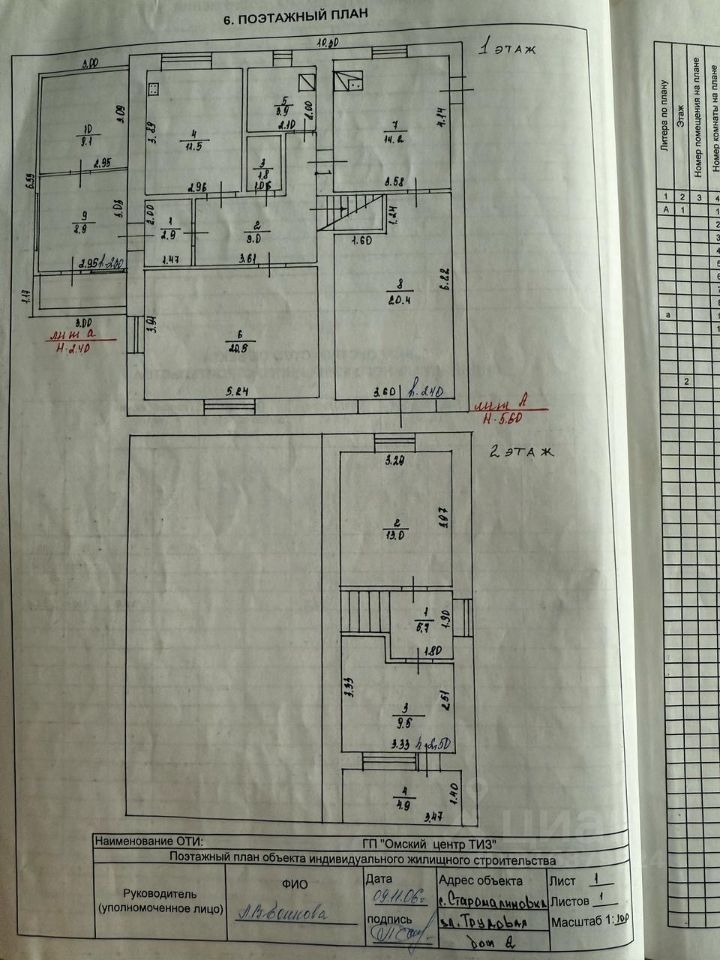 6. ПОЭТАЖНЫЙ ПЛАН
1 ЭТАЖ
10.90
3.00
10
9.1
3.09
2.95
6.99
9
2.9
3.03
2.95 h-2.30
1.17
3.00
лит а
Н-2.40
4
11.5
3.89
2.96
5
3.9
2.00
2.10
3
1.8
1.06
7
14.2
4.14
3.58
1
2.9
2.00
1.47
2
9.0
3.61
1.24
1.60
8
20.4
6.22
3.60 h-2.40
6
20.5
3.91
5.24
лит А
Н-5.60
2 ЭТАЖ
3.20
2
13.0
3.97
1
5.7
1.90
1.80
3
9.5
3.33
2.51
3.33 h-2.50
4
4.9
1.40
3.47
Наименование ОТИ: ГП "Омский центр ТИЗ"
Поэтажный план объекта индивидуального жилищного строительства
Руководитель
(уполномоченное лицо)
ФИО
Дата
09.11.06г.
подпись
Адрес объекта
с. Старомалиновка
ул. Трудовая
дом 2
Лист 1
Листов 1
Масштаб 1:100
Литера по плану
Этаж
Номер помещения на плане
Номер комнаты на плане
1 2 3 4
А 1
а
2